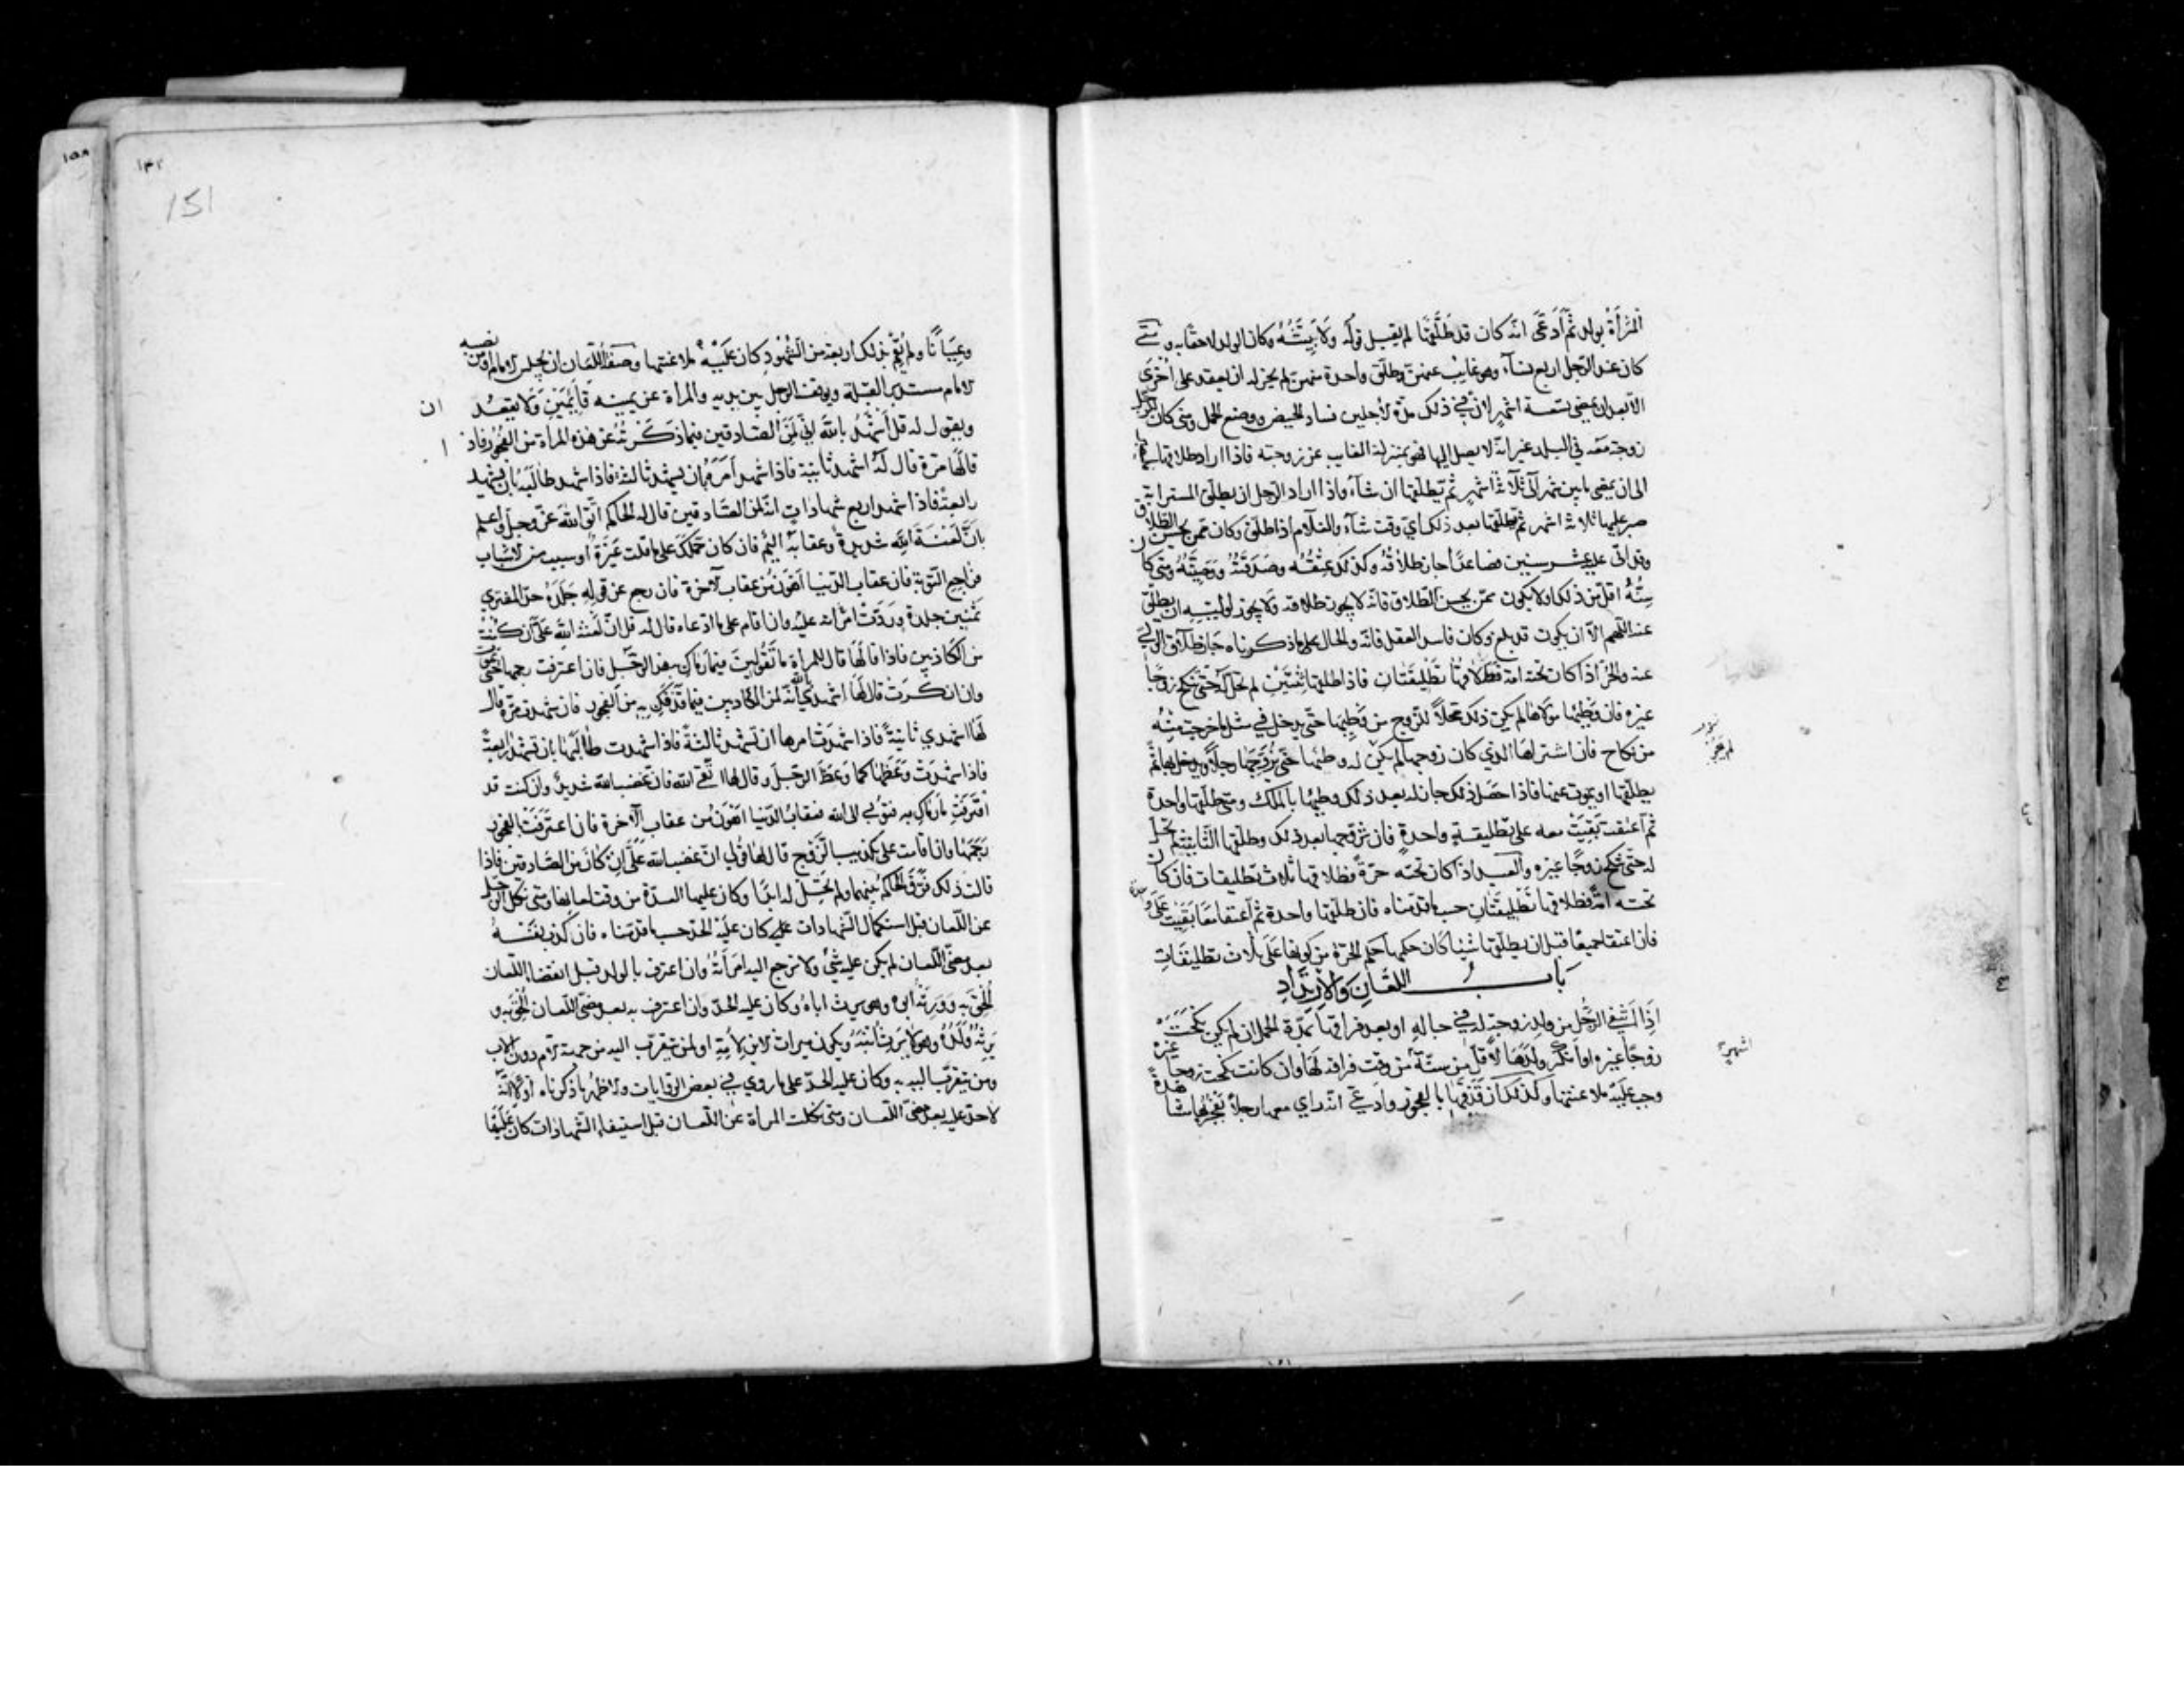 المرأة بولد ثم ادعى انه كان قد طلقها لم يقبل قوله ولا بينته وكان الولد لاحقا به ومتى
كان عند الرجل اربع نساء وهو غايب عنهن وطلق واحدة منهن لم يجز له ان يعقد على اخرى
الا بعد ان يمضي تسعة اشهر لان في ذلك مدة الاجلين فساد الحيض ووضع الحمل ومتى كان للرجل
زوجة معه في البلد غير انه لا يصل اليها فهو بمنزلة الغايب عن زوجته فاذا اراد طلاقها
الى ان يمضي ما بين شهر الى ثلاثة اشهر ثم يطلقها ان شاء واذا اراد الرجل ان يطلق المسترابة
صبر عليها ثلاثة اشهر ثم يطلقها بعد ذلك اي وقت شاء والغلام اذا طلق وكان ممن يحسن الطلاق
وقد اتى عليه عشر سنين فصاعدا جاز طلاقه وكذلك عتقه وصدقته ووصيته ومتى كان
سنه اقل من ذلك اولا يكون ممن يحسن الطلاق فانه لا يجوز طلاقه ولا يجوز لوليه ان يطلق
عنه اللهم الا ان يكون قد بلغ وكان فاسد العقل فانه والحال على ما ذكرناه جاز طلاق الولي
عنه والحر اذا كان تحته امة فطلاقها تطليقتان فاذا طلقها اثنتين لم تحل له حتى تنكح زوجا
غيره فان وطئها مولاها لم يكن ذلك محللا للزوج من وطيها حتى يدخل في مثل ما خرجت منه
من نكاح فان اشتراها الذي كان زوجها لم يكن له وطئها حتى يزوجها رجلا ويدخل بها ثم
يطلقها او يموت عنها فاذا حصل ذلك جاز له بعد ذلك وطيها بالملك ومتى طلقها واحدة
ثم اعتقت بقيت معه على تطليقة واحدة فان تزوجها بعد ذلك وطلقها الثانية لم تحل
له حتى تنكح زوجا غيره والعبد اذا كان تحته حرة فطلاقها ثلاث تطليقات فان كان
تحته امة فطلاقها تطليقتان حسب ما قدمناه فان طلقها واحدة ثم اعتقا معا بقيت على
فان اعتقا جميعا قبل ان يطلقها شيئا كان حكمها حكم الحرة من كونها على ثلاث تطليقات
باب اللعان والارتداد
اذا انتفى الرجل من ولد زوجة له في حباله او بعد فراقها بمدة الحمل ان لم يكن نكحت
زوجا غيره او انكر ولدها لاقل من ستة من وقت فراقه لها وان كانت نكحت زوجا غيره
اشهر
وجب عليه ملاعنتها وكذلك ان قذفها بالفجور وادعى انه راى معها رجلا يفجر بها مشاهدة
151
وعيانا ولم يقم بذلك اربعة من الشهود كان عليه ملاعنتها وصفة اللعان ان يجلس الامام
الامام مستدبر القبلة ويوقف الرجل بين يديه والمراة عن يمينه قائمين ولا يقعد
ويقول له قل اشهد بالله اني لمن الصادقين فيما ذكرته عن هذه المراة من الفجور فاذا
قالها مرة قال له اشهد ثانية فاذا شهد امره بان يشهد ثالثة فاذا شهد طالبه بان يشهد
رابعة فاذا شهد اربع شهادات انه لمن الصادقين قال له الحاكم اتق الله عز وجل واعلم
بان لعنة الله شديدة وعقابه اليم فان كان حملك على ما قلت غيرة او سبب من الاسباب
فراجع التوبة فان عقاب الدنيا اهون من عقاب الاخرة فان رجع عن قوله جلده حد المفتري
ثمنين جلدة وردت امراته عليه وان اقام على ما ادعاه قال له قل ان لعنة الله علي ان كنت
من الكاذبين فاذا قالها قال للمراة ما تقولين فيما رماك به هذا الرجل فان اعترفت رجمها حتى
وان انكرت قال لها اشهدي بالله انه لمن الكاذبين فيما قذفك به من الفجور فان شهدت مرة قال
لها اشهدي ثانية فاذا شهدت امرها ان تشهد ثالثة فاذا شهدت طالبها بان تشهد رابعة
فاذا شهدت وعظها كما وعظ الرجل وقال لها اتقي الله فان غضب الله شديد وان كنت قد
افترفت ما رماك به فتوبي الى الله فعقاب الدنيا اهون من عقاب الآخرة فان اعترفت بالفجور
رجمها وان اقامت على تكذيب الزوج قال لها قولي ان غضب الله علي ان كان من الصادقين فاذا
قالت ذلك فرق الحاكم بينهما ولم تحل له ابدا وكان عليها العدة من وقت لعانها ومتى نكل الرجل
عن اللعان قبل استكمال الشهادات عليه كان عليه الحد حسب ما قدمناه فان كذب نفسه
بعد مضي اللعان لم يكن عليه شيء ولا ترجع اليه امراته وان اعترف بالولد قبل انقضاء اللعان
الحق به وورثه ابوه وهو يرث اباه وكان عليه الحد وان اعترف به بعد مضي اللعان الحق به و
يرثه ولده وهو لا يرث ابنه ويكون ميراث الابن لامه او لمن يتقرب اليه من جهة الام دون الاب
ومن يتقرب اليه به وكان عليه الحد على ما روي في بعض الروايات والاظهر ما ذكرناه اولا انه
لا حد عليه بعد مضي اللعان ومتى نكلت المراة عن اللعان قبل استيفاء الشهادات كان عليها